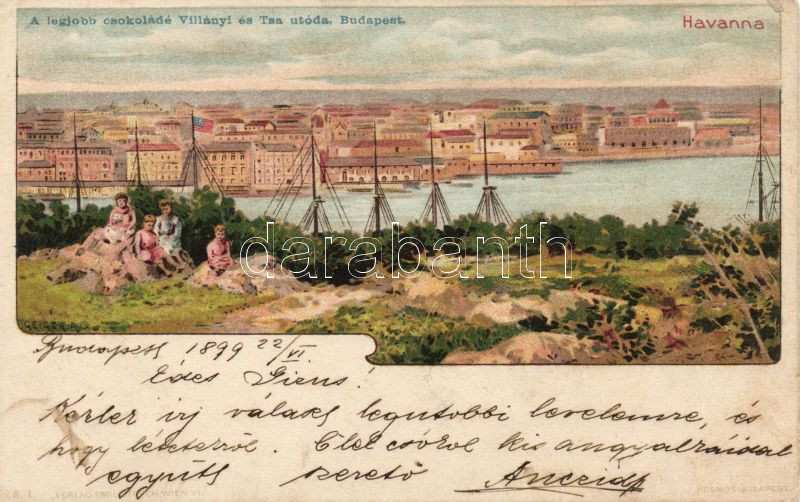 A legjobb csokoládé Villányi és Tsa utóda, Budapest.
Havanna
darabanth
GEIGER R.
Budapest 1899 22/VI.
Édes
válasz legutobbi levelemre, és
hogy Ölel csókol kis angyalkáiddal
együtt szerető
VERLAG EMIL WIEN VI. KOSMOS, BUDAPEST.